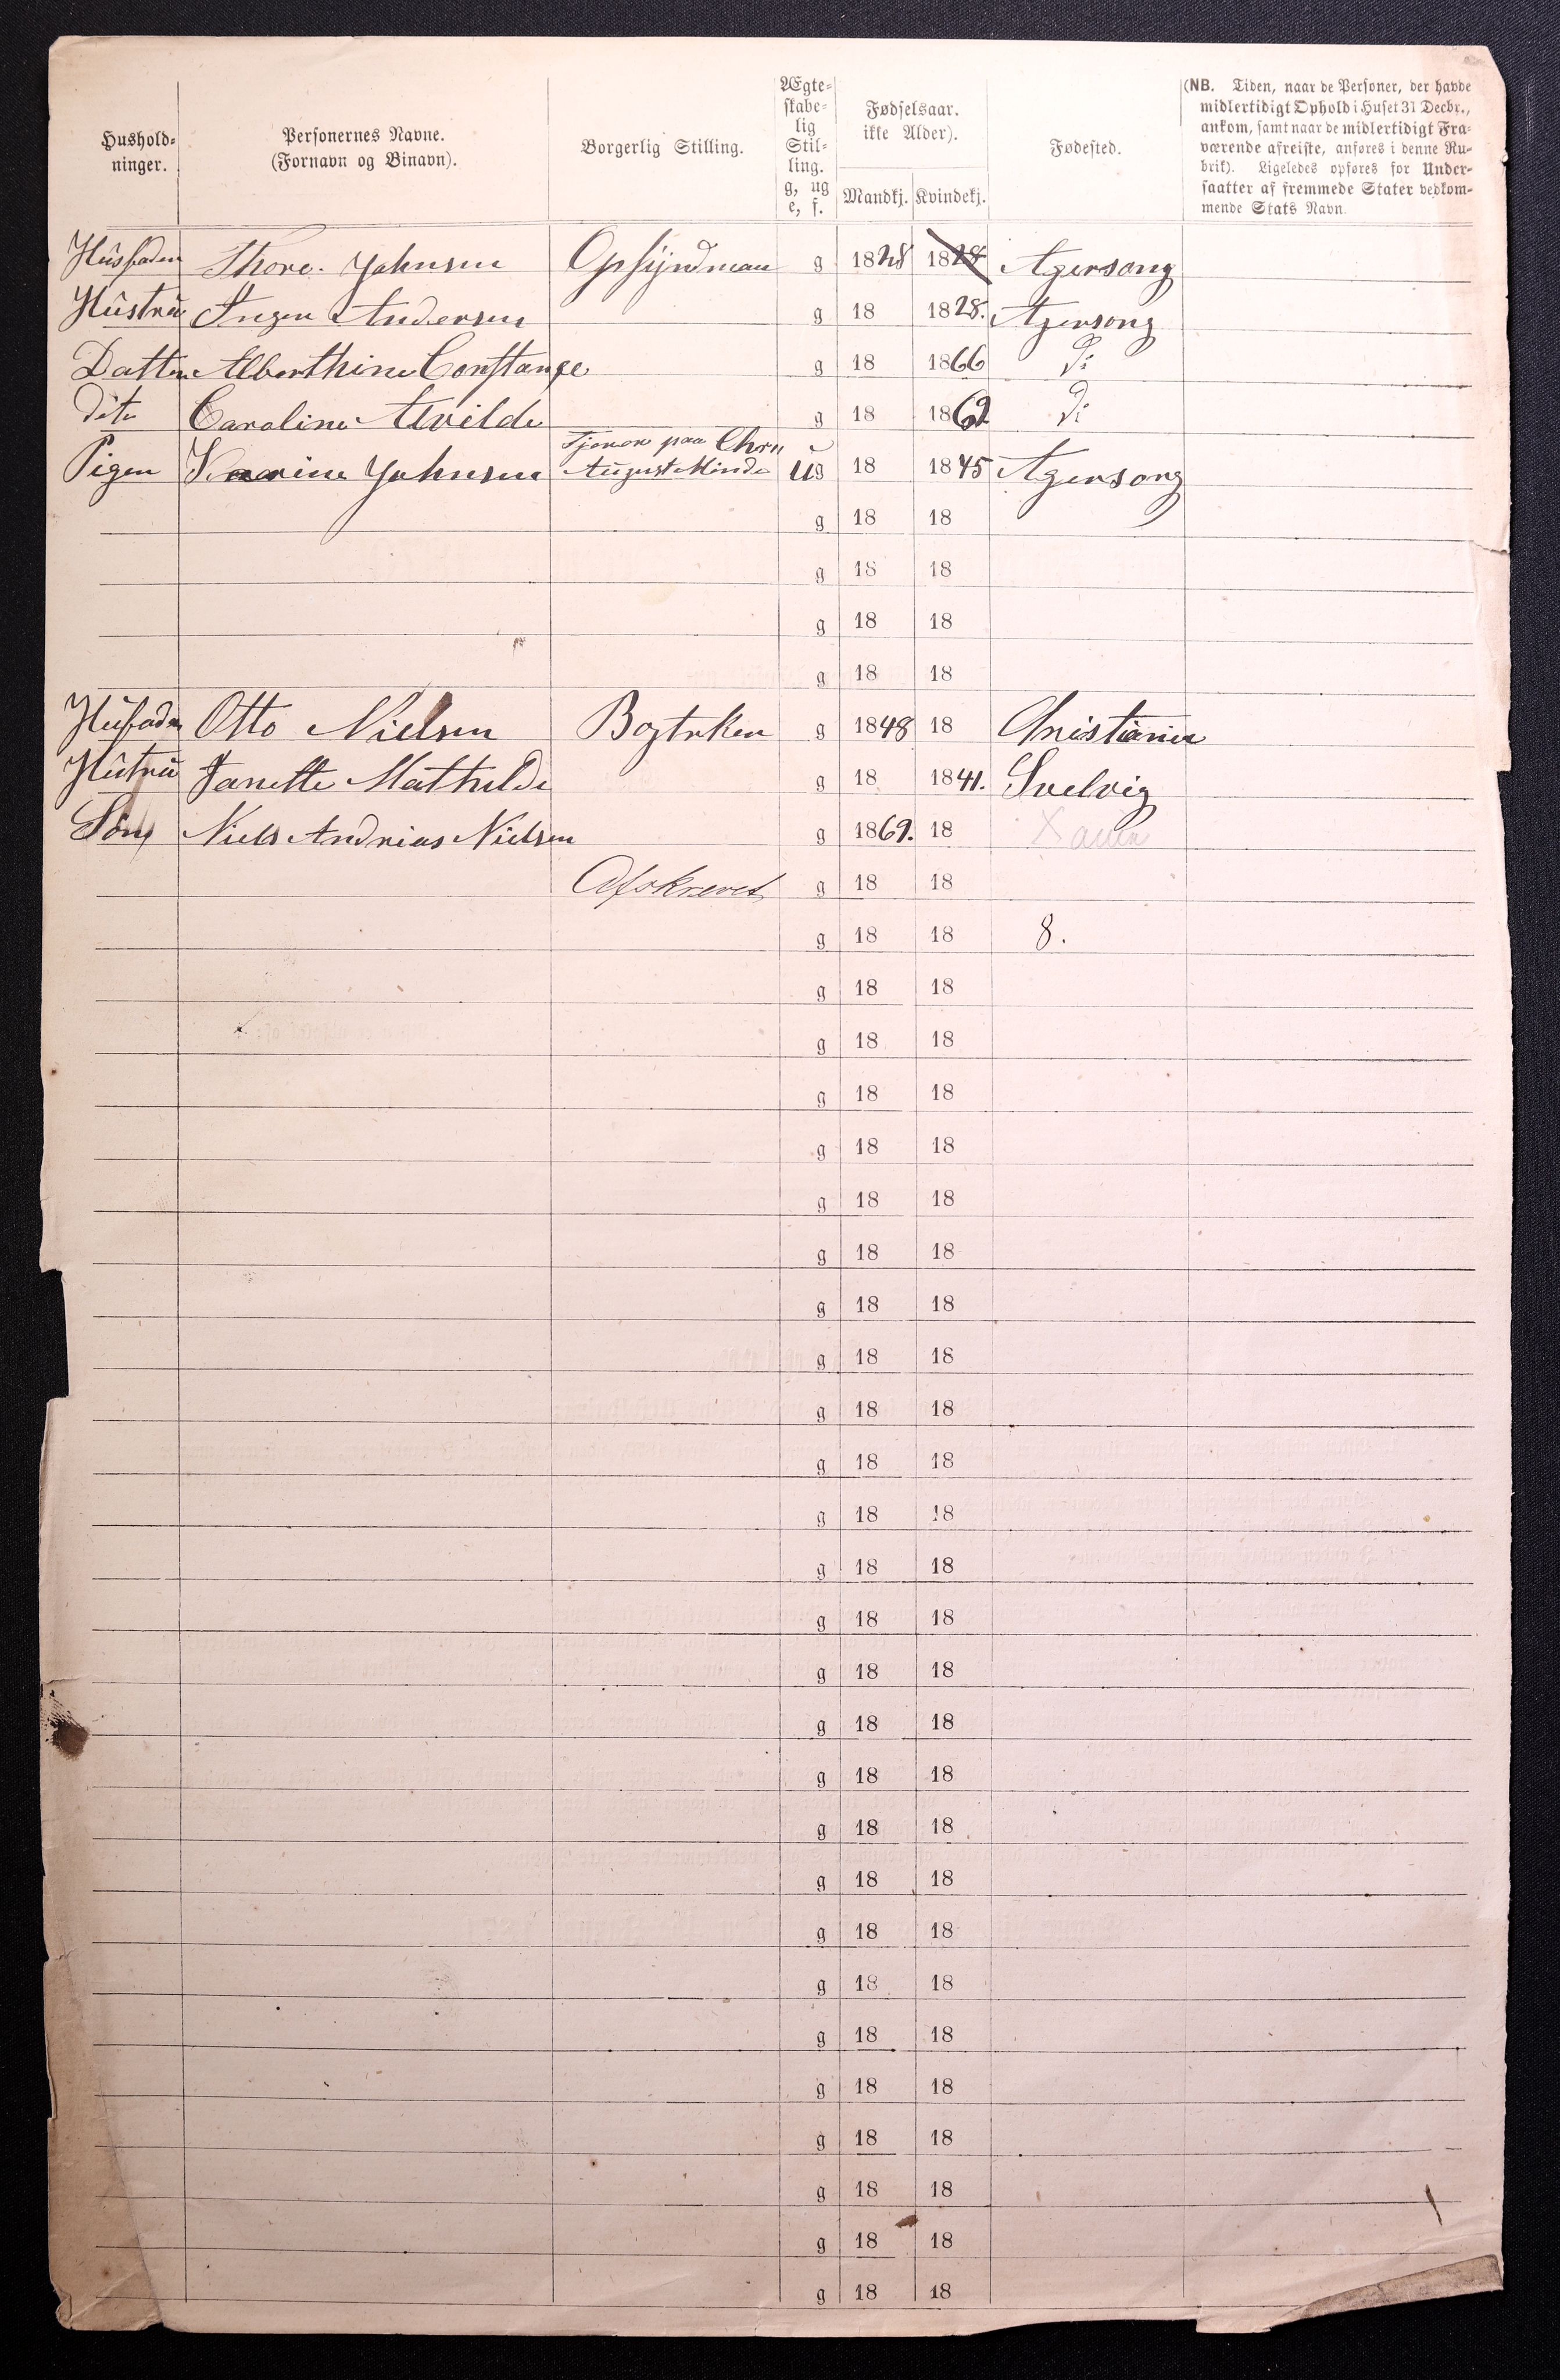 Hushold-
ninger.
Personernes Navne.
(Fornavn og Binavn).
Borgerlig Stilling.
Ægte-
skabe-
lig
Stil-
ling.
g, ug
e, f.
Fødselsaar.
ikke Alder).
Mandkj. Kvindekj.
Fødested.
(NB. Tiden, naar de Personer, der havde
midlertidigt Ophold i Huset 31 Decbr.,
ankom, samt naar de midlertidigt Fra-
værende afreiste, anføres i denne Ru-
brik). Ligeledes opføres for Under-
saatter af fremmede Stater vedkom-
mende Stats Navn.
Husfaden Thore Johnsen Opsijndman g 1828 1828 Agersong
Hustru Inger Andersen g 18 1828. Agersong
Datter Alberthine Constange g 18 1866 Di
dito Caroline Alvilde g 18 1869 Di
Tjener paa Chrn
Pigen Johnsen August Minde ug 18 1845 Agersong
g 18 18
g 18 18
g 18 18
g 18 18
Husfaden Otto Nielsen Bogtrken g 1848 18 Christiania
Hustru Janette Mathilde g 18 1841. Svelvig
Søn Niels Andreas Nielsen g 1869. 18
Afskrevet g 18 18
g 18 18 8.
g 18 18
g 18 18
g 18 18
g 18 18
g 18 18
g 18 18
g 18 18
g 18 18
g 18 18
g 18 18
g 18 18
g 18 18
g 18 18
g 18 18
g 18 18
g 18 18
g 18 18
g 18 18
g 18 18
g 18 18
g 18 18
g 18 18
g 18 18
g 18 18
g 18 18
g 18 18